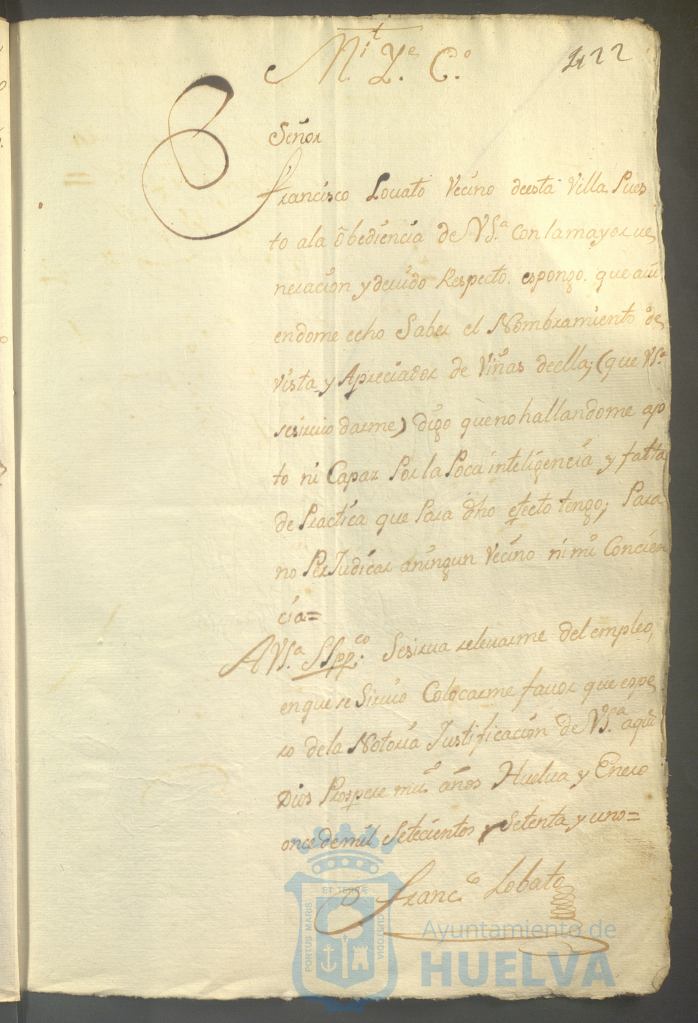 M. Y.e C.o
422
Señor
Francisco Lovato Vecino deesta Villa Pues
to ala Obediencia de VS.a con la mayor ve
neracion y devido Respecto. espongo. que avi
endome echo Saber el Nombramiento de
vista y Apreciador de Viñas deella; (que VS.a
sesirvio darme) digo que no hallandome ap
to ni Capaz Por la Poca inteligencia y falta
de Practica que Para dho efecto tengo; Para
no PerJudicar aningun Vecino ni mi Concien
cia=
A VS.a SSpp.co Sesirva relevarme del empleo,
en que se Sirvio Colocarme favor que espe
ro de la Notoria Justificacion de VS.a aqn
Dios Prospere ms. años Huelva y Enero
once de mil Setecientos y Setenta y uno=
Franc.co Lobato
PORTUS MARIS
ET TERRÆ
CUSTODIA
Ayuntamiento de
HUELVA